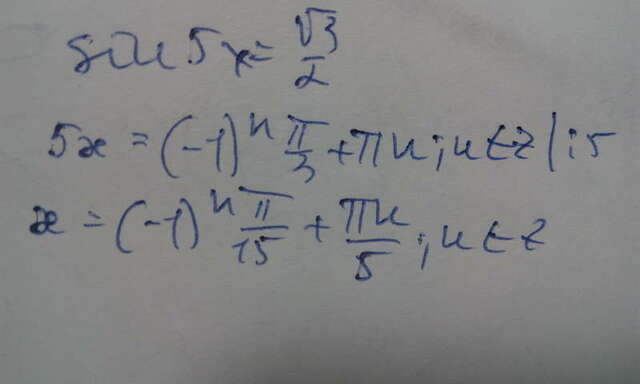 sin 5x = √3/2
5x = (-1)ⁿ π/3 + πn; n ∈ Z | :5
x = (-1)ⁿ π/15 + πn/5; n ∈ Z